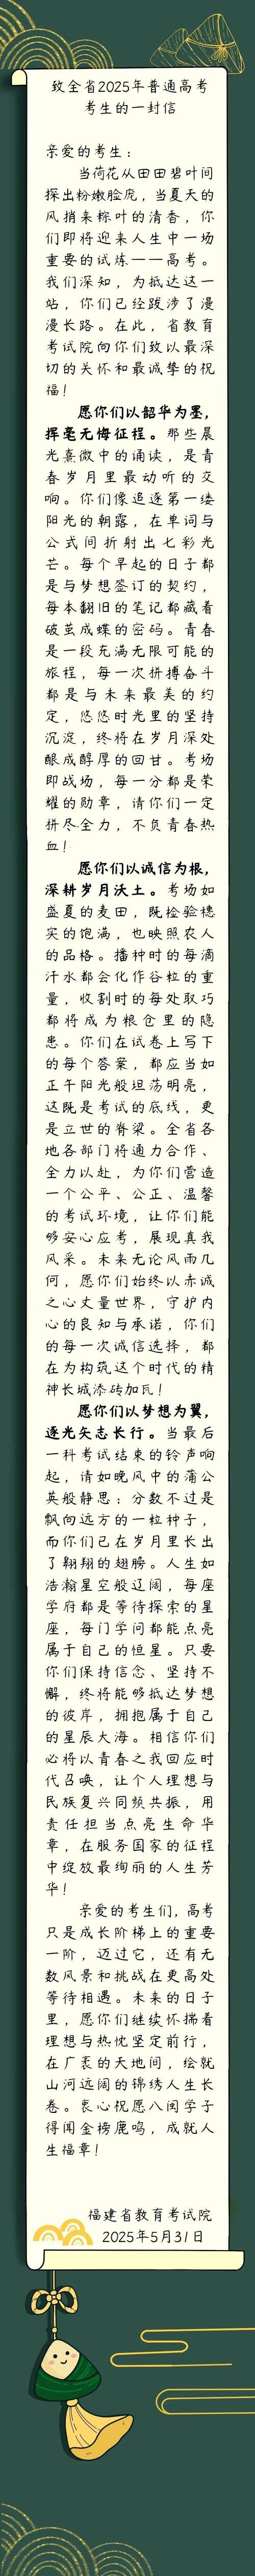 致全省2025年普通高考
考生的一封信
亲爱的考生：
当荷花从田田碧叶间
探出粉嫩脸庞，当夏天的
风捎来粽叶的清香，你
们即将迎来人生中一场
重要的试炼——高考。
我们深知，为抵达这一
站，你们已经跋涉了漫
漫长路。在此，省教育
考试院向你们致以最深
切的关怀和最诚挚的祝
福！
愿你们以韶华为墨，
挥毫无悔征程。那些晨
光熹微中的诵读，是青
春岁月里最动听的交
响。你们像追逐第一缕
阳光的朝露，在单词与
公式间折射出七彩光
芒。每个早起的日子都
是与梦想签订的契约，
每本翻旧的笔记都藏着
破茧成蝶的密码。青春
是一段充满无限可能的
旅程，每一次拼搏奋斗
都是与未来最美的约
定，悠悠时光里的坚持
沉淀，终将在岁月深处
酿成醇厚的回甘。考场
即战场，每一分都是荣
耀的勋章，请你们一定
拼尽全力，不负青春热
血！
愿你们以诚信为根，
深耕岁月沃土。考场如
盛夏的麦田，既检验穗
实的饱满，也映照农人
的品格。播种时的每滴
汗水都会化作谷粒的重
量，收割时的每处取巧
都将成为粮仓里的隐
患。你们在试卷上写下
的每个答案，都应当如
正午阳光般坦荡明亮，
这既是考试的底线，更
是立世的脊梁。全省各
地各部门将通力合作、
全力以赴，为你们营造
一个公平、公正、温馨
的考试环境，让你们能
够安心应考，展现真我
风采。未来无论风雨几
何，愿你们始终以赤诚
之心丈量世界，守护内
心的良知与承诺，你们
的每一次诚信选择，都
在为构筑这个时代的精
神长城添砖加瓦！
愿你们以梦想为翼，
逐光矢志长行。当最后
一科考试结束的铃声响
起，请如晚风中的蒲公
英般静思：分数不过是
飘向远方的一粒种子，
而你们已在岁月里长出
了翱翔的翅膀。人生如
浩瀚星空般辽阔，每座
学府都是等待探索的星
座，每门学问都能点亮
属于自己的恒星。只要
你们保持信念、坚持不
懈，终将能够抵达梦想
的彼岸，拥抱属于自己
的星辰大海。相信你们
必将以青春之我回应时
代召唤，让个人理想与
民族复兴同频共振，用
责任担当点亮生命华
章，在服务国家的征程
中绽放最绚丽的人生芳
华！
亲爱的考生们，高考
只是成长阶梯上的重要
一阶，迈过它，还有无
数风景和挑战在更高处
等待相遇。未来的日子
里，愿你们继续怀揣着
理想与热忱坚定前行，
在广袤的天地间，绘就
山河远阔的锦绣人生长
卷。衷心祝愿八闽学子
得闻金榜鹿鸣，成就人
生福章！
福建省教育考试院
2025年5月31日